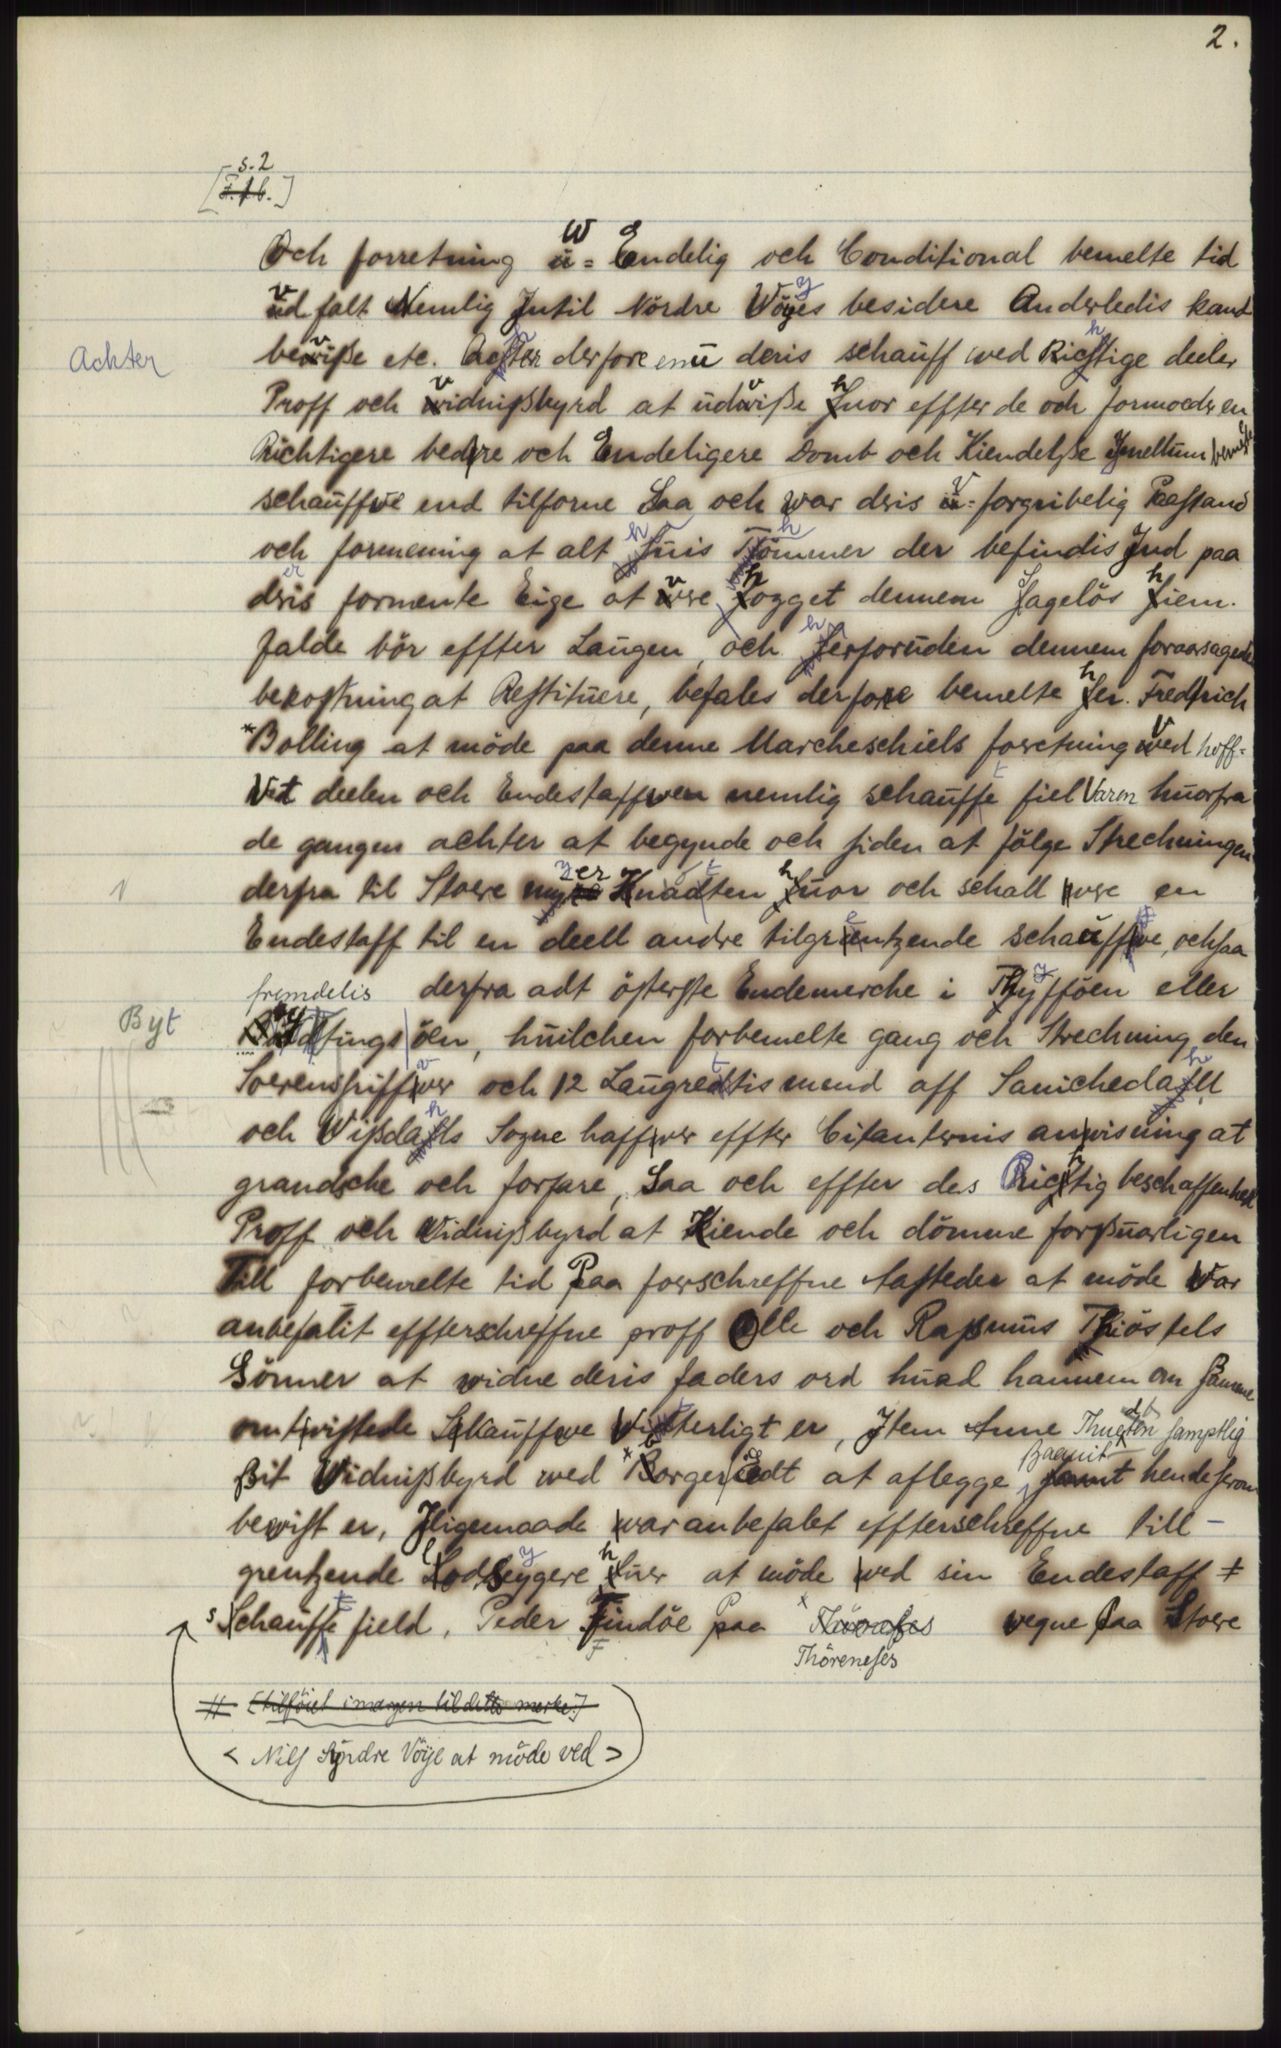 2.
s. 2
[F. 1 b.]
Och forretning W-Endelig och Conditional bemelte tid
vd falt Nemlig Jntil Nördre Wöyes besidere Anderledis kand
Achter
beviße etc. Achter derfore enū deris schaūff wed Richtige deeler
Proff och vidnißbyrd at ūdviße hūor effter de och formoeder en
Richtigere bedre och Endeligere Domb och Kiendelße Jmellum bemelte
schaūffūe end tilforne Saa och war deris v-forgribelig Paastand
och formening at alt hūis Tömmer der befindis Jnd paa
deris formente Eige at vere hogget dennem Sagelös hiem
falde bör effter Laūgen, och herforūden dennem foraarsagede
bekostning at Restitūere, befales derfore bemelte her. Fredrich
*Bolling at möde paa denne Marcheschiels forretning Ved hoff-
Vit deelen och Endestaffwen nemlig schaūfft fiel Varen hūorfra
de gangen achter at begynde och siden at fölge Strechningen
derfra til Stoere myer Knatten hūor och schall vere en
Endestaff til en deell andre tilgrentzende schaūffve, och saa
fremdelis derfra adt österste Endemerche i Thyffōen eller
Byt
Bytting öen, hūilchen forbemelte gang och Strechning den
Soerenschriffver och 12 Laūgrettis mend aff Sanichedahll
och Wißdahls Sogne haffver effter Citanternis anvisning at
grandsche och forfare, Saa och effter des Richtig beschaffenhed
Proff och Vidnißbyrd at Kiende och dömme forßuarligen
Till forbemelte tid Paa forschreffne Aasteder at möde War
anbefalit effterschreffne proff Olle och Rasmūs Thiöstels
Sönner at widne deris faders ord hūad hannem om samme
omtvistede Schaūffve Vitterligt er, Jtem Anne samptlig
sit Vidnißbyrd wed Borger Edt at aflegge hende herom
bevist er, Jligemaade var anbefalet effterschreffne till-
grentzende Lodseygere hūer at möde ved sin Endestaff ≠
schaūfft field, Peder Findöe paa Thöreneses wegne paa Stoere
# [tilföiet i margen til dette merke:]
< Nilf Syndre Vöye at möde ved >